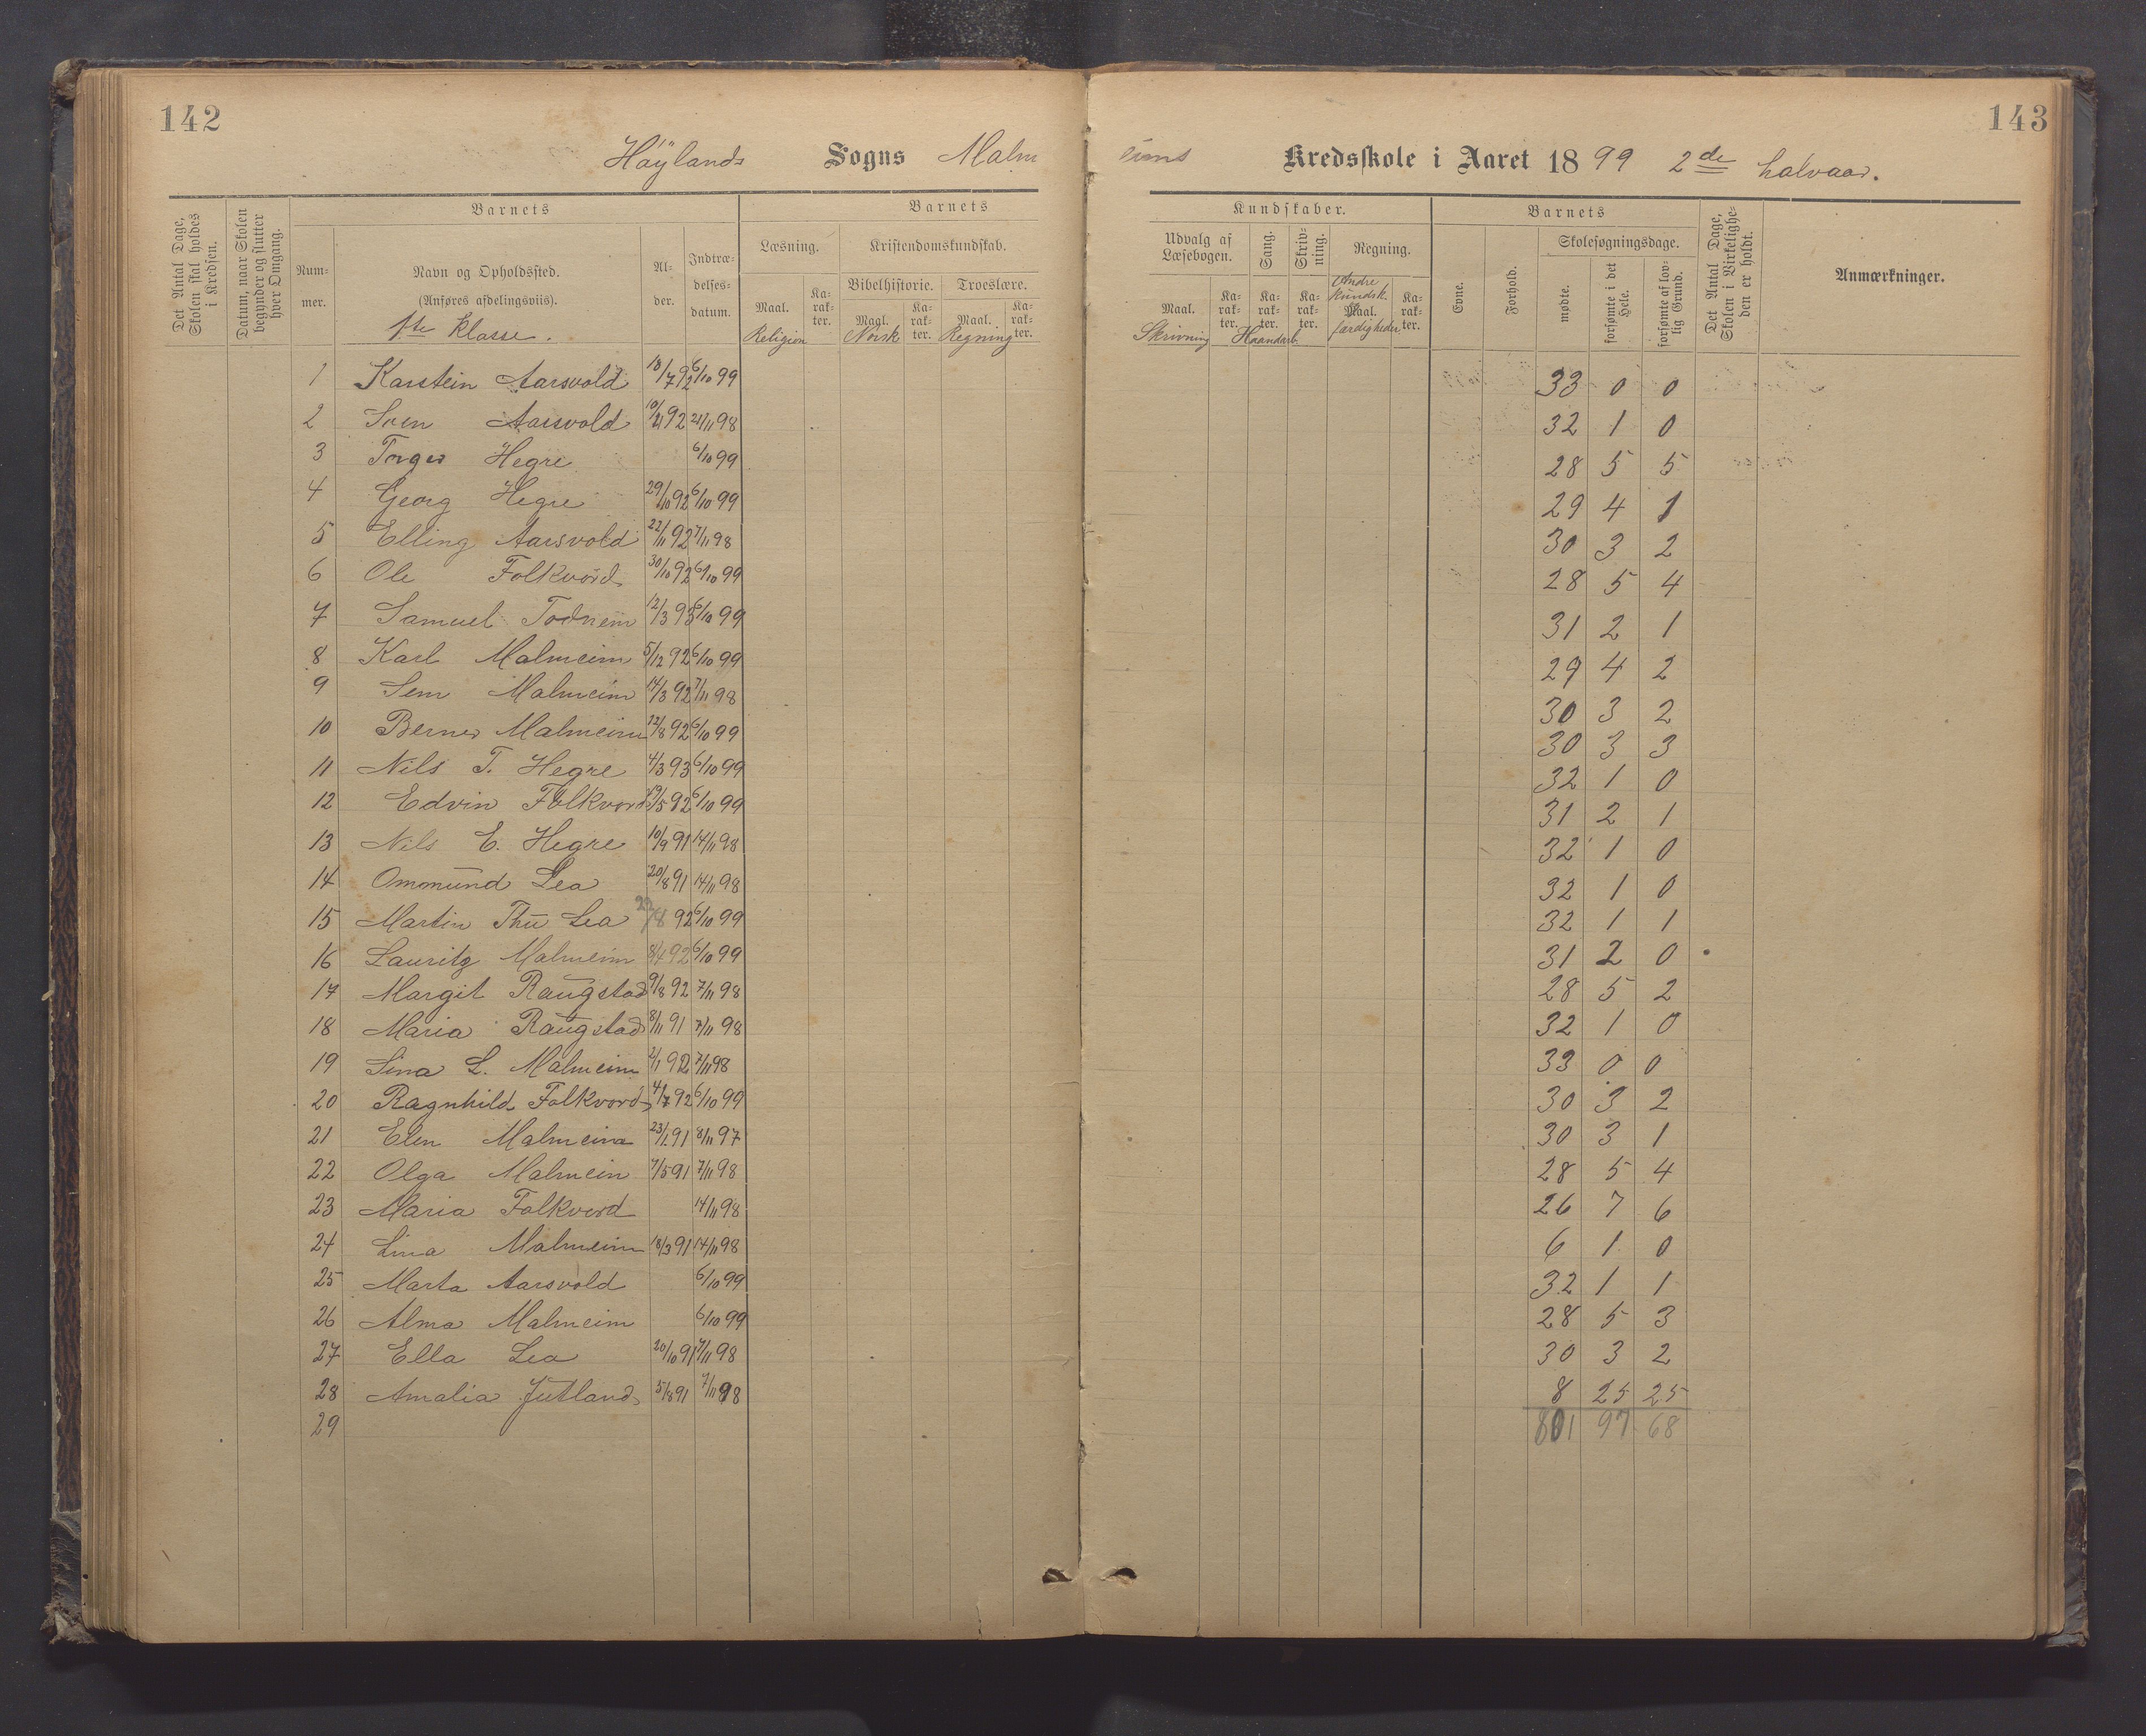 142
143
Høylands Sogns Malmeims Kredsskole i Aaret 1899 2de halvaar.
Det Antal Dage, Skolen skal holdes i Kredsen.
Datum, naar Skolen begynder og slutter hver Omgang.
Barnets
Nummer.
Navn og Opholdssted.
(Anføres afdelingsviis).
1ste Klasse.
Alder.
Indtrædelsesdatum.
Barnets
Læsning.
Kristendomskundskab.
Bibelhistorie. Troeslære.
Maal. Karakter. Maal. Karakter. Maal. Karakter.
Religion Norsk Regning
Kundskaber.
Udvalg af Læsebogen. Sang. Skrivning. Regning.
Andre kundsk.
Maal. Karakter. Karakter. Karakter. Maal. Karakter.
Skrivning Haandarb. færdigheder
Barnets
Evne. Forhold. Skolesøgningsdage.
mødte. forsømte i det Hele. forsømte af lovlig Grund.
Det Antal Dage, Skolen i Virkeligheden er holdt.
Anmærkninger.
1 Karstein Aarsvold 18/7 92 6/10 99 33 0 0
2 Sven Aarsvold 92 21/11 98 32 1 0
3 Torger Hegre 6/10 99 28 5 5
4 Georg Hegre 29/10 92 6/10 99 29 4 1
5 Elling Aarsvold 22/11 92 7/11 98 30 3 2
6 Ole Folkvord 30/10 92 6/10 99 28 5 4
7 Samuel Todneim 12/3 93 6/10 99 31 2 1
8 Karl Malmeim 5/12 92 6/10 99 29 4 2
9 Sem Malmeim 14/3 92 7/11 98 30 3 2
10 Berner Malmeim 12/8 92 6/10 99 30 3 3
11 Nils T. Hegre 4/3 93 6/10 99 32 1 0
12 Edvin Folkvord /5 92 6/10 99 31 2 1
13 Nils E. Hegre 10/9 91 14/11 98 32 1 0
14 Ommund Lea 20/8 91 14/11 98 32 1 0
15 Martin Thu Lea 22/8 92 6/10 99 32 1 1
16 Lauritz Malmeim 8/4 92 6/10 99 31 2 0
17 Margit Raugstad 9/8 92 7/11 98 28 5 2
18 Maria Raugstad 8/11 91 7/11 98 32 1 0
19 Sina L. Malmeim 2/1 92 7/11 98 33 0 0
20 Ragnhild Folkvord 4/7 92 6/10 99 30 3 2
21 Elen Malmeim 23/1 91 8/11 97 30 3 1
22 Olga Malmein 7/5 91 7/11 98 28 5 4
23 Maria Folkvord 14/11 98 26 7 6
24 Lina Malmeim 18/3 91 14/11 98 6 1 0
25 Marta Aarsvold 6/10 99 32 1 1
26 Alma Malmeim 6/10 99 28 5 3
27 Ella Lea 20/10 91 7/11 98 30 3 2
28 Amalia Jutland 5/8 91 7/11 98 8 25 25
29 801 97 68